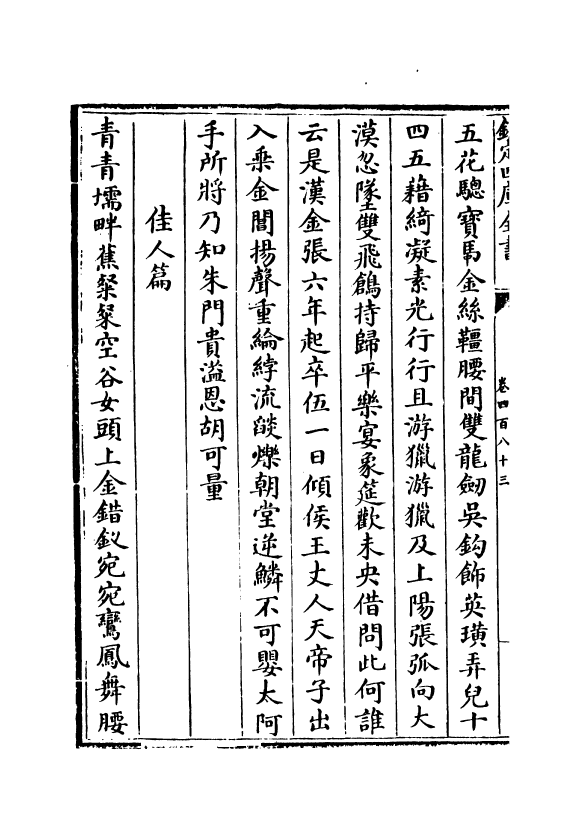 欽定四庫全書
卷四百八十三
五花驄寶馬金絲韁腰間雙龍劒吳鈎飾英璜弄兒十
四五藉綺凝素光行行且游獵游獵及上陽張弧向大
漠忽墜雙飛鶬持歸平樂宴象筵歡未央借問此何誰
云是漢金張六年起卒伍一日傾侯王丈人天帝子出
入乗金閨揚聲重綸綍流燄爍朝堂逆鱗不可嬰太阿
手所將乃知朱門貴溢恩胡可量
佳人篇
青青壖畔蕉粲粲空谷女頭上金錯釵宛宛鸞鳳舞腰